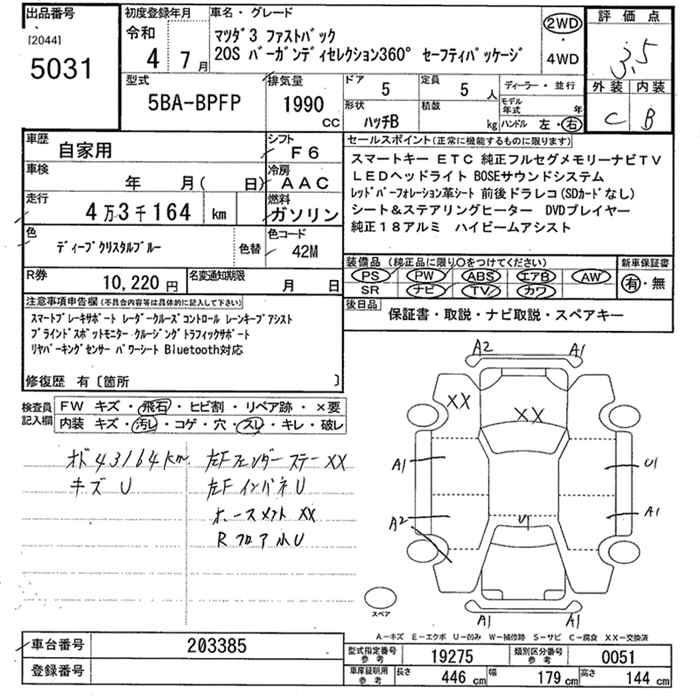 出品番号 初度登録年月 車名・グレード 2WD 評価点
[2044] 令和 マツダ3 ファストバック
5031 4 7月 20S バーガンディセレクション360° セーフティパッケージ 4WD 3.5
型式 排気量 ドア 定員 ディーラー・並行 外装 内装
5BA-BPFP 1990 CC 5 5人 モデル年式 年 C B
形状 積載
ハッチB kg ハンドル 左・右
車歴 シフト セールスポイント(正常に機能するものに限ります)
自家用 F6 スマートキー ETC 純正フルセグメモリーナビTV
車検 冷房 LEDヘッドライト BOSEサウンドシステム
年 月( 日) AAC レッドパーフォレーション革シート 前後ドラレコ(SDカードなし)
走行 燃料 シート&ステアリングヒーター DVDプレイヤー
4万3千164 km ガソリン 純正18アルミ ハイビームアシスト
色 色コード
ディープクリスタルブルー 色替 42M 装備品(純正品に限り〇をつけてください) 新車保証書
PS PW ABS エアB AW 有・無
R券 10,220円 名変通知期限 月 日 SR ナビ TV カワ
注意事項申告欄(不具合内容等は具体的に記入して下さい) 後日品
スマートブレーキサポート レーダークルーズコントロール レーンキープアシスト 保証書・取説・ナビ取説・スペアキー
ブラインドスポットモニター クルージングトラフィックサポート
リヤパーキングセンサー パワーシート Bluetooth対応
修復歴 有〔箇所 〕
検査員記入欄 FW キズ・飛石・ヒビ割・リペア跡・×要
内装 キズ・汚レ・コゲ・穴・スレ・キレ・破レ
オド43164km 左Fフェンダーステー XX
キズ U 左Fインパネ U
ホースメント XX
Rフロア小U
A2 A1
XX XX
A1 U1
A2 U1 A1
A1 A1
スペア
A―キズ E―エクボ U―凹み W―補修跡 S―サビ C―腐食 XX―交換済
車台番号 203385 型式指定番号 参考 19275 類別区分番号 参考 0051
登録番号 車庫証明用 参考 長さ 446 cm 幅 179 cm 高さ 144 cm